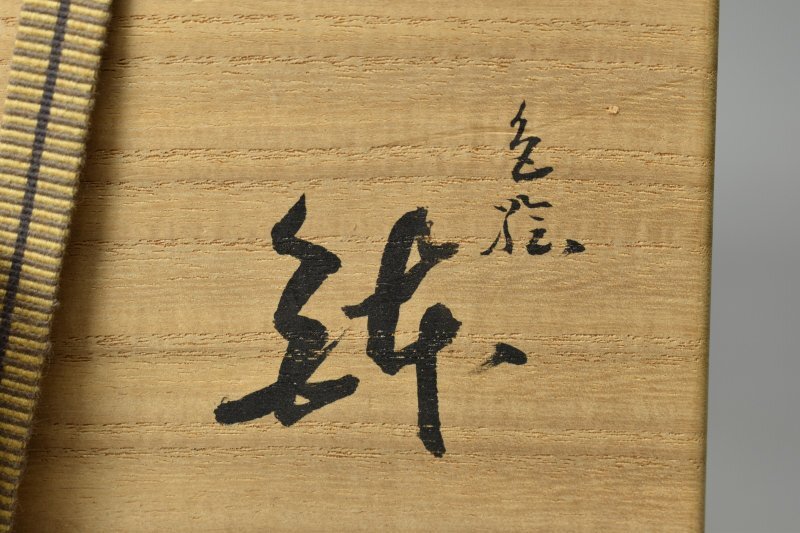 色絵
鉢